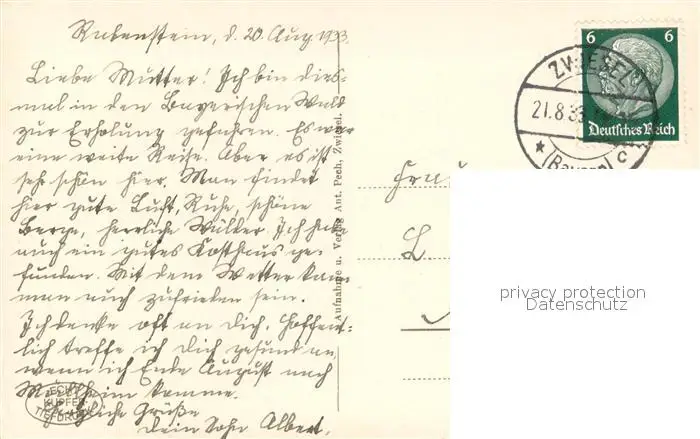 Rabenstein, d. 20. Aug 1933.
Liebe Mutter! Ich bin dies-
mal in den Bayerischen Wald
zur Erholung gefahren. Es war
eine weite Reise. Aber es ist
sehr schön hier. Man findet
hier gute Luft, Ruhe, schöne
Berge, herrliche Wälder. Ich hab
auch ein gutes Kosthaus ge-
funden. Mit dem Wetter kann
man auch zufrieden sein.
Ich denke oft an dich. Hoffent-
lich treffe ich dich gesund an,
wenn ich Ende August nach
komme.
Herzliche Grüße
Dein Sohn Albert.
ECHT
KUPFER-
TIEFDRUCK
Aufnahme u. Verlag Ant. Pech, Zwiesel.
6 6
Deutsches Reich
ZWIESEL
21.8.33
(Bayern) c
Frau
L.
privacy protection
Datenschutz